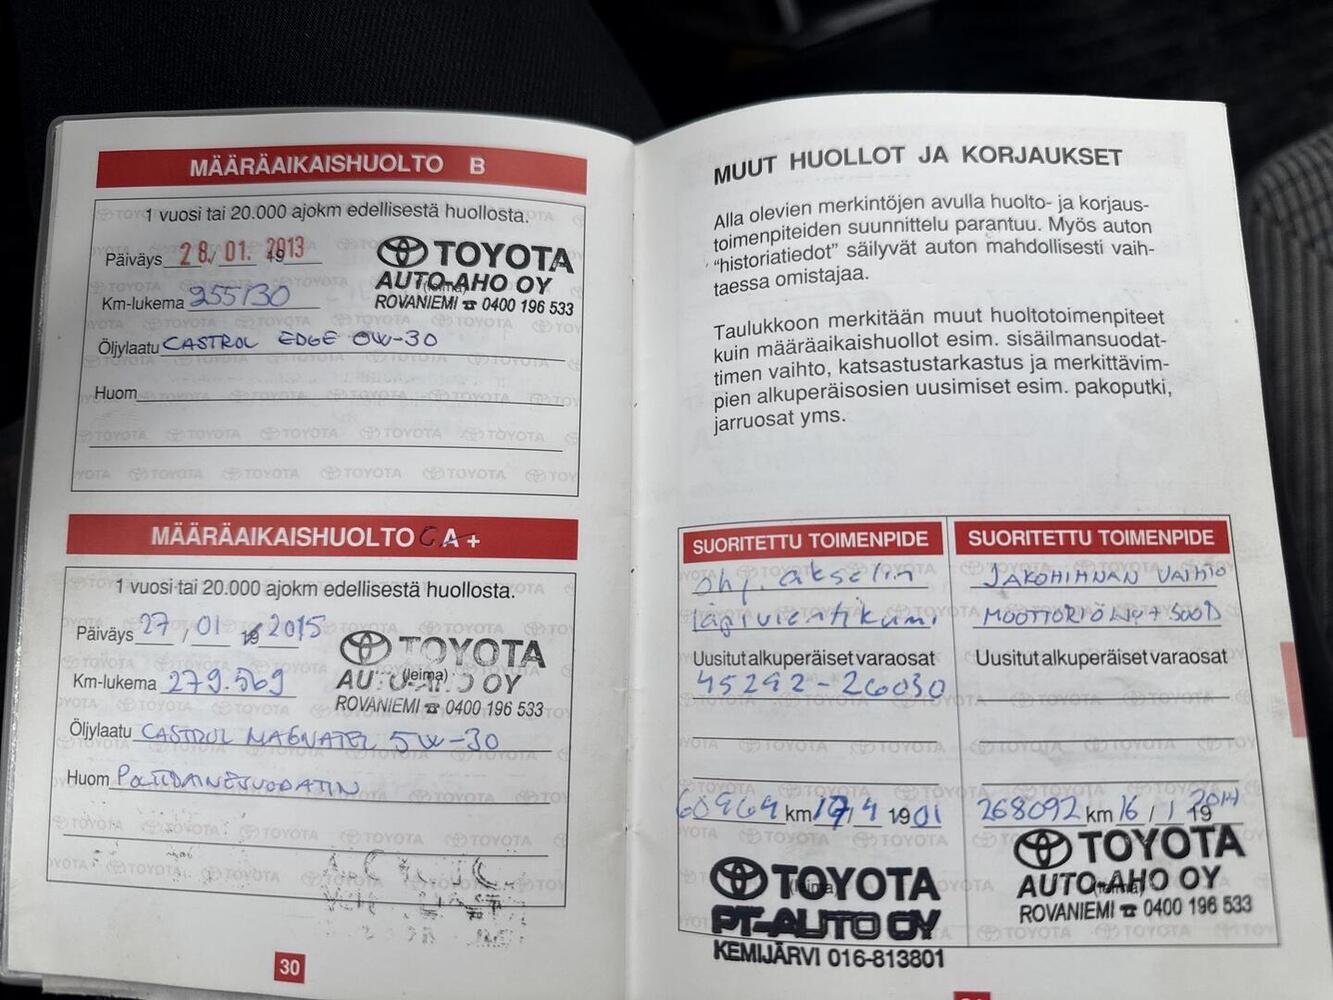 MÄÄRÄAIKAISHUOLTO B
1 vuosi tai 20.000 ajokm edellisestä huollosta.
Päiväys 28. 01. 2013
TOYOTA
AUTO-AHO OY
(leima)
ROVANIEMI ☎ 0400 196 533
Km-lukema 255130
Öljylaatu CASTROL EDGE 0W-30
Huom
MÄÄRÄAIKAISHUOLTO C A +
1 vuosi tai 20.000 ajokm edellisestä huollosta.
Päiväys 27,01 19 2015
TOYOTA
AUTO-AHO OY
(leima)
ROVANIEMI ☎ 0400 196 533
Km-lukema 279.569
Öljylaatu CASTROL MAGNATEL 5W-30
Huom POLTTOAINESUODATIN
30
MUUT HUOLLOT JA KORJAUKSET
Alla olevien merkintöjen avulla huolto- ja korjaus-
toimenpiteiden suunnittelu parantuu. Myös auton
"historiatiedot" säilyvät auton mahdollisesti vaih-
taessa omistajaa.
Taulukkoon merkitään muut huoltotoimenpiteet
kuin määräaikaishuollot esim. sisäilmansuodat-
timen vaihto, katsastustarkastus ja merkittävim-
pien alkuperäisosien uusimiset esim. pakoputki,
jarruosat yms.
SUORITETTU TOIMENPIDE
ohj. akselin
läpivientikumi
Uusitut alkuperäiset varaosat
45292-26030
60969 km 17/4 1901
TOYOTA
(leima)
PT-AUTO OY
KEMIJÄRVI 016-813801
SUORITETTU TOIMENPIDE
JAKOHIHNAN VAIHTO
MOOTTORIÖLJY + SUOD
Uusitut alkuperäiset varaosat
268092 km 16 / 1 19 2014
TOYOTA
AUTO-AHO OY
(leima)
ROVANIEMI ☎ 0400 196 533